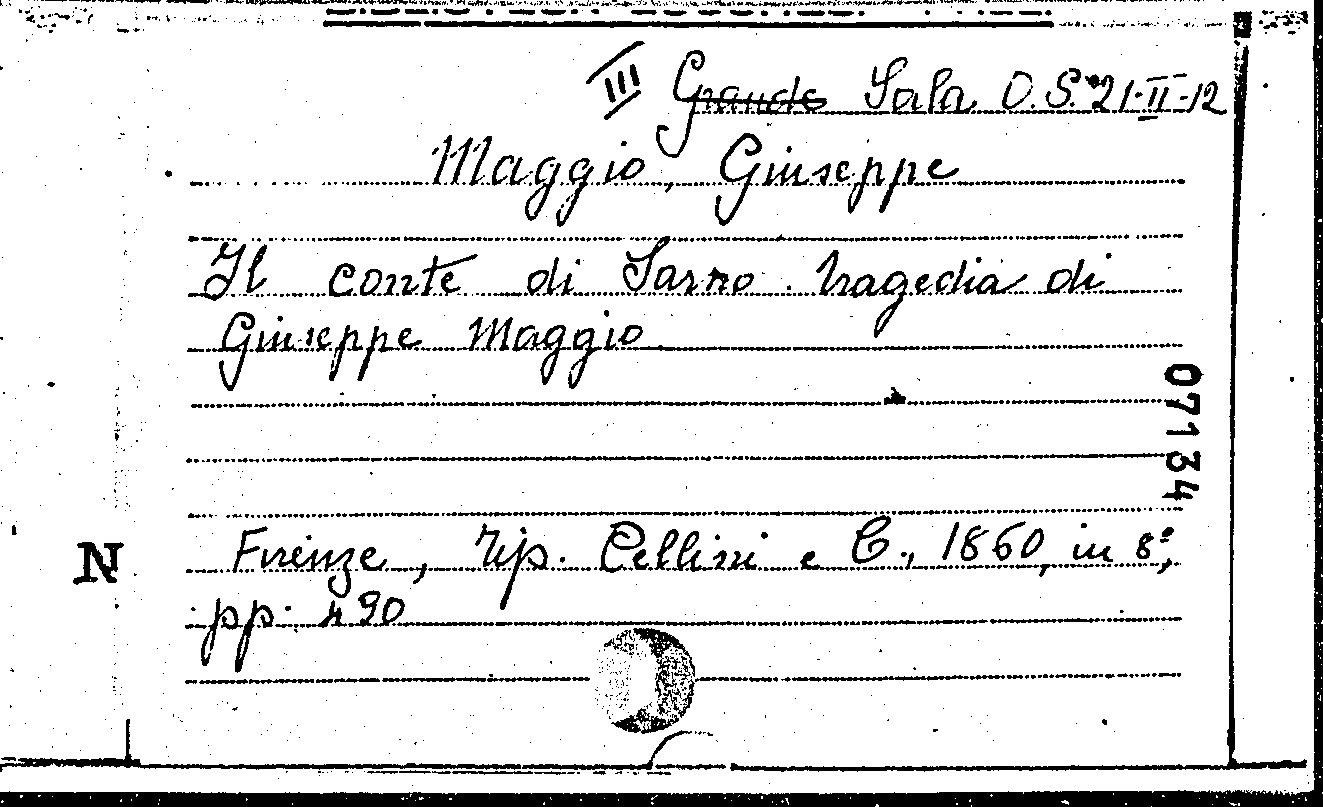 III Grande Sala O.S. 21-II-12
Maggio, Giuseppe
Il conte di Sarno. tragedia di
Giuseppe Maggio.
07134
N
Firenze, tip. Cellini e C., 1860, in 8º,
pp. 490